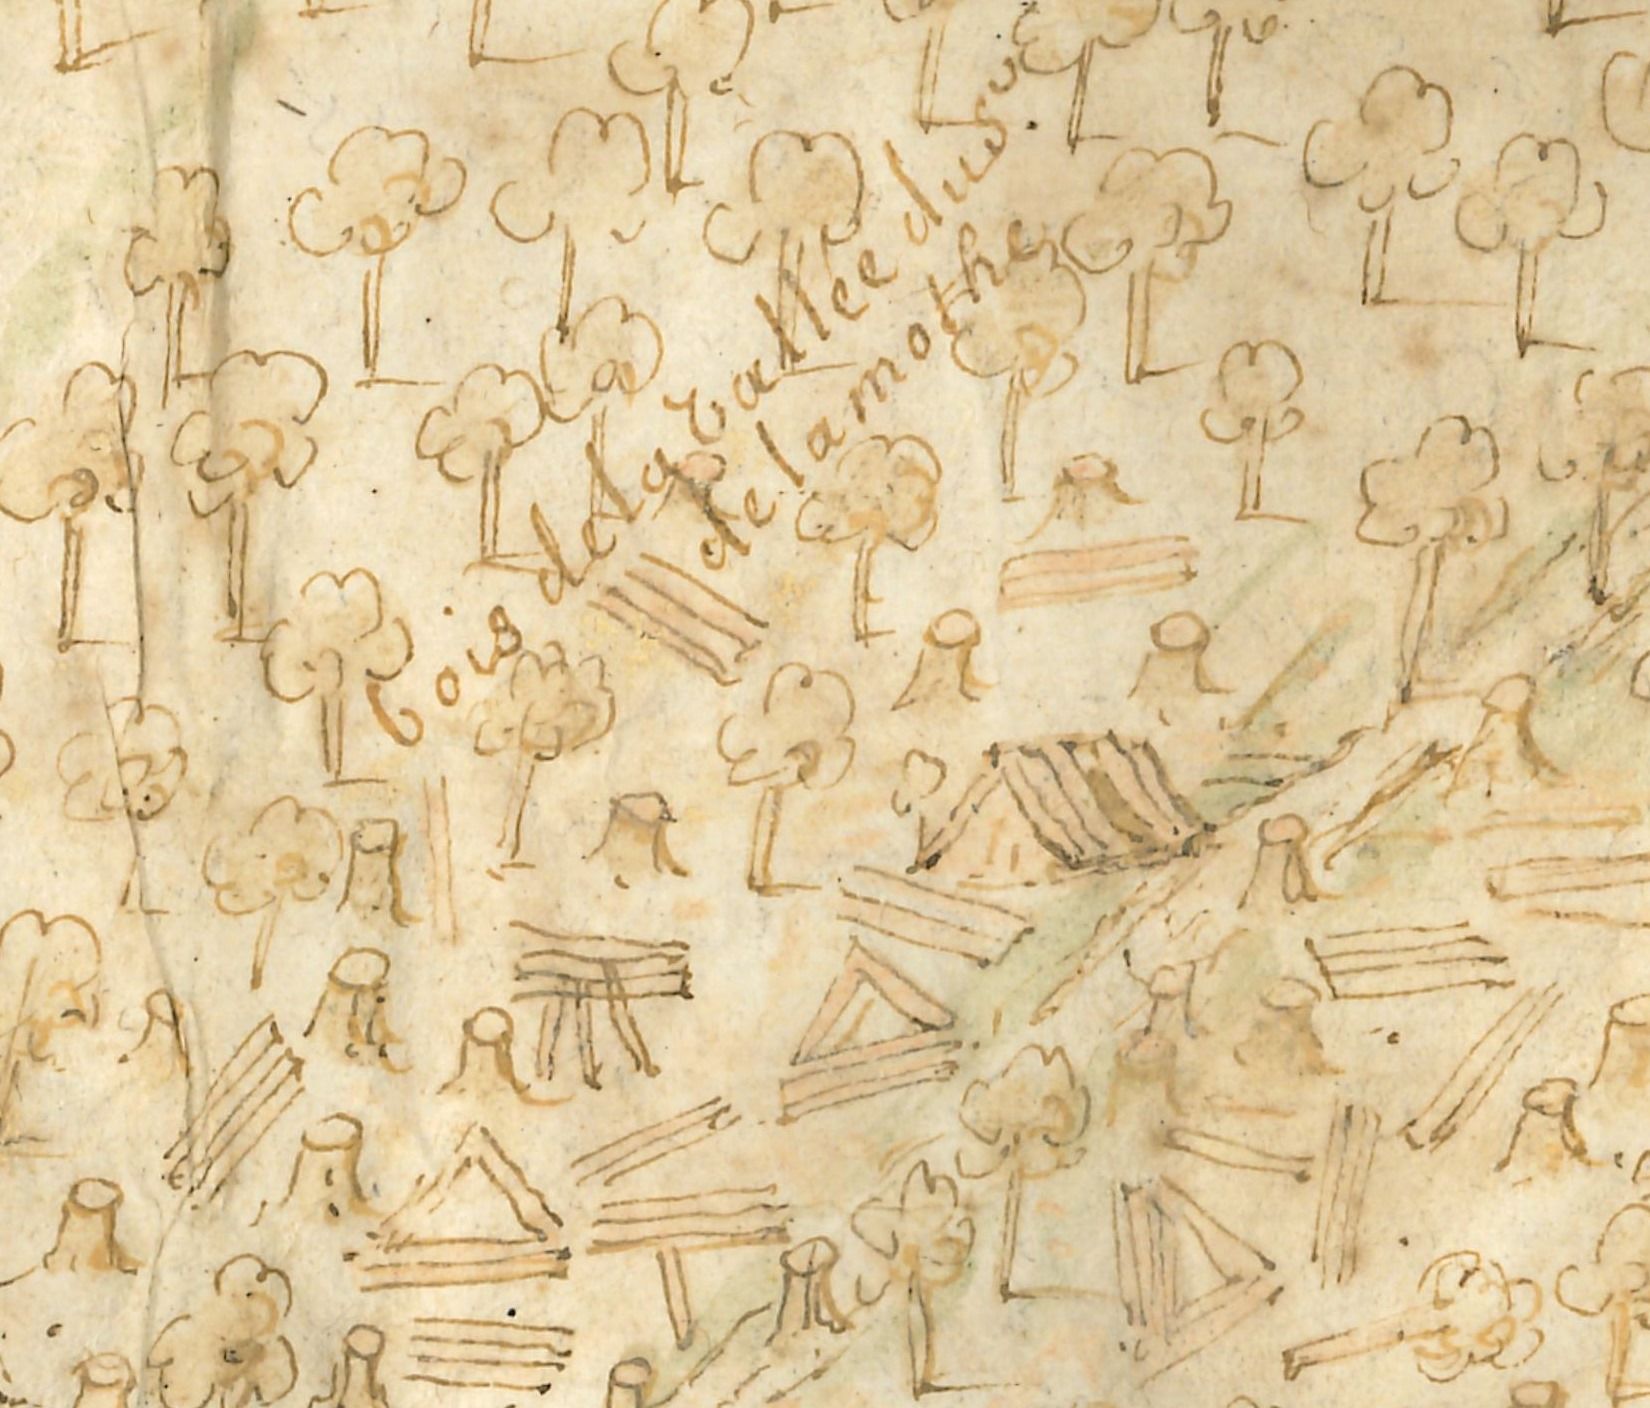 bois de la vallée du
de lamothe